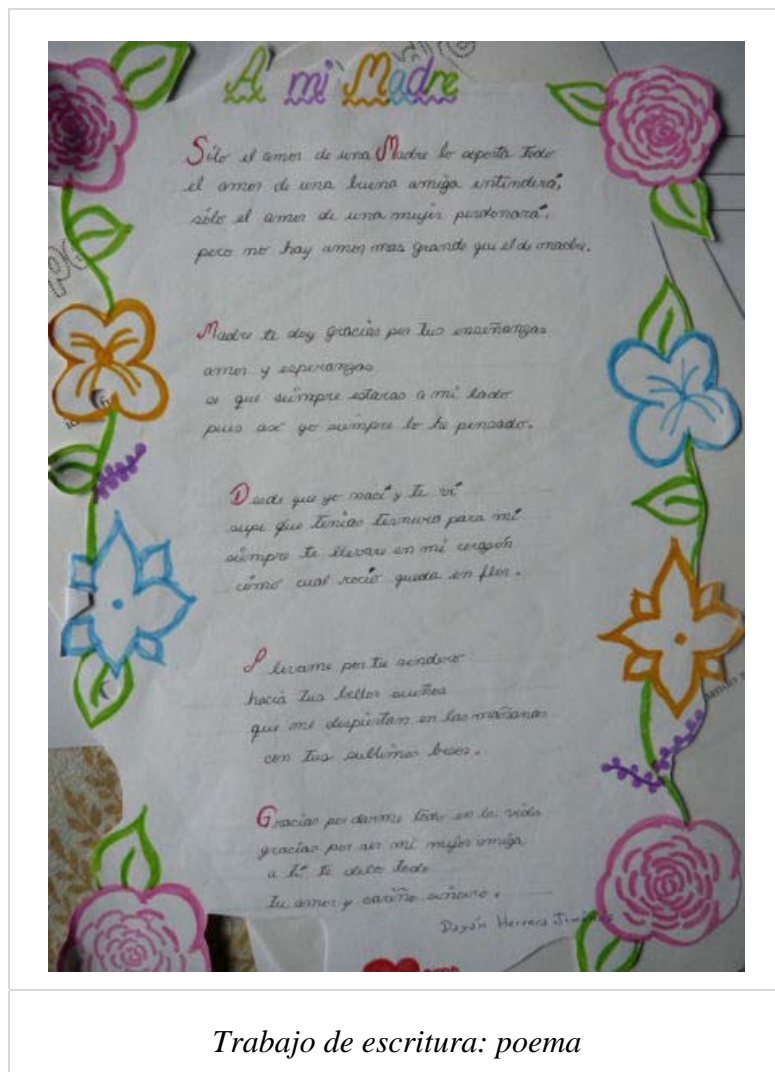 A mi Madre
Sólo el amor de una Madre lo soporta todo
el amor de una buena amiga entenderá,
sólo el amor de una mujer perdonará,
pero no hay amor mas grande que el de madre.
Madre te doy gracias por tus enseñanzas
amor y esperanzas
se que siempre estaras a mi lado
pues así yo siempre lo he pensado.
Desde que yo nací y te ví
supe que tenias ternura para mí
siempre te llevare en mi corazón
cómo cual rocío queda en flor.
llevame por tu sendero
hacia tus bellos sueños
que me despiertan en las mañanas
con tus sublimes besos.
Gracias por darme todo en la vida
gracias por ser mi mejor amiga
a tí te debo todo
tu amor y cariño sincero.
Dayán Herrera
Trabajo de escritura: poema